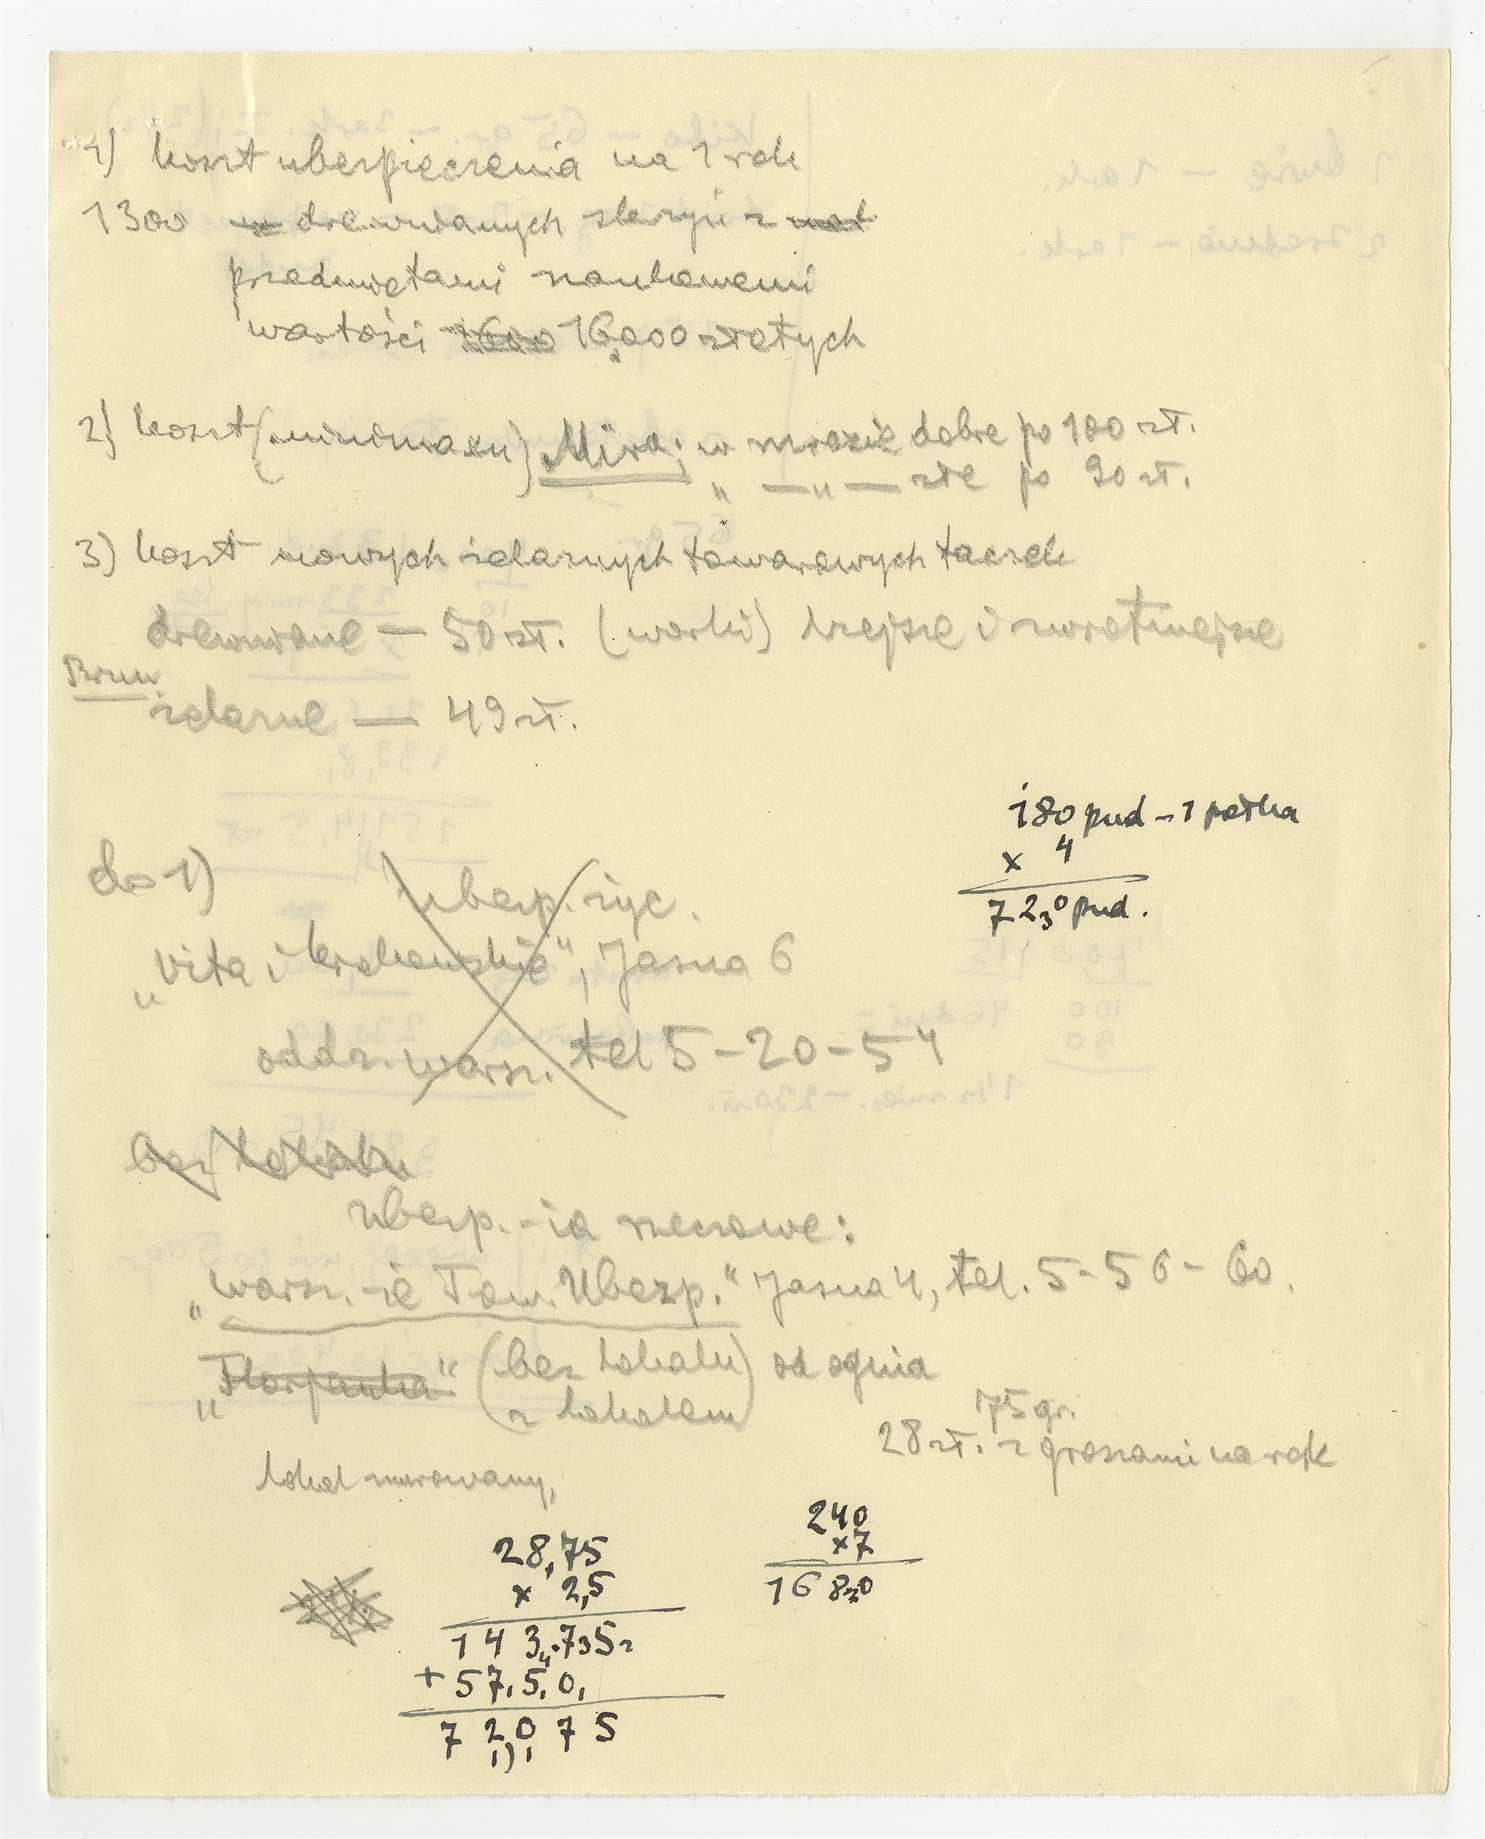 1) koszt ubezpieczenia na 1 rok
1300 drewnianych skrzyń z
przedmiotami naukowemi
wartości 1600 16,000 złotych
2) koszt (minimaxu) Mira; w mrozie dobre po 100 zł.
„ —„— złe po 90 zł.
3) koszt nowych żelaznych towarowych taczek
drewniane — 50 zł. (worki) lżejsze i zwrotniejsze
żelazne — 49 zł.
180 pud – 1 półka
x 4
720 pud.
do 1)
ubezp. życ.
„Vita i Krakowskie", Jasna 6
oddz. warsz. tel 5-20-54
bez lokalu
ubezp.-ia rzeczowe:
„Warsz.-ie Tow. Ubezp." Jasna 4, tel. 5-56-60.
„Florjanka" (bez lokalu) od ognia
(z lokalem)
75 gr.
28 zł. z groszami na rok
lokal murowany,
240
x7
1680
28,75
x 2,5
143 75
+ 57 5 0
7 2 0 7 5